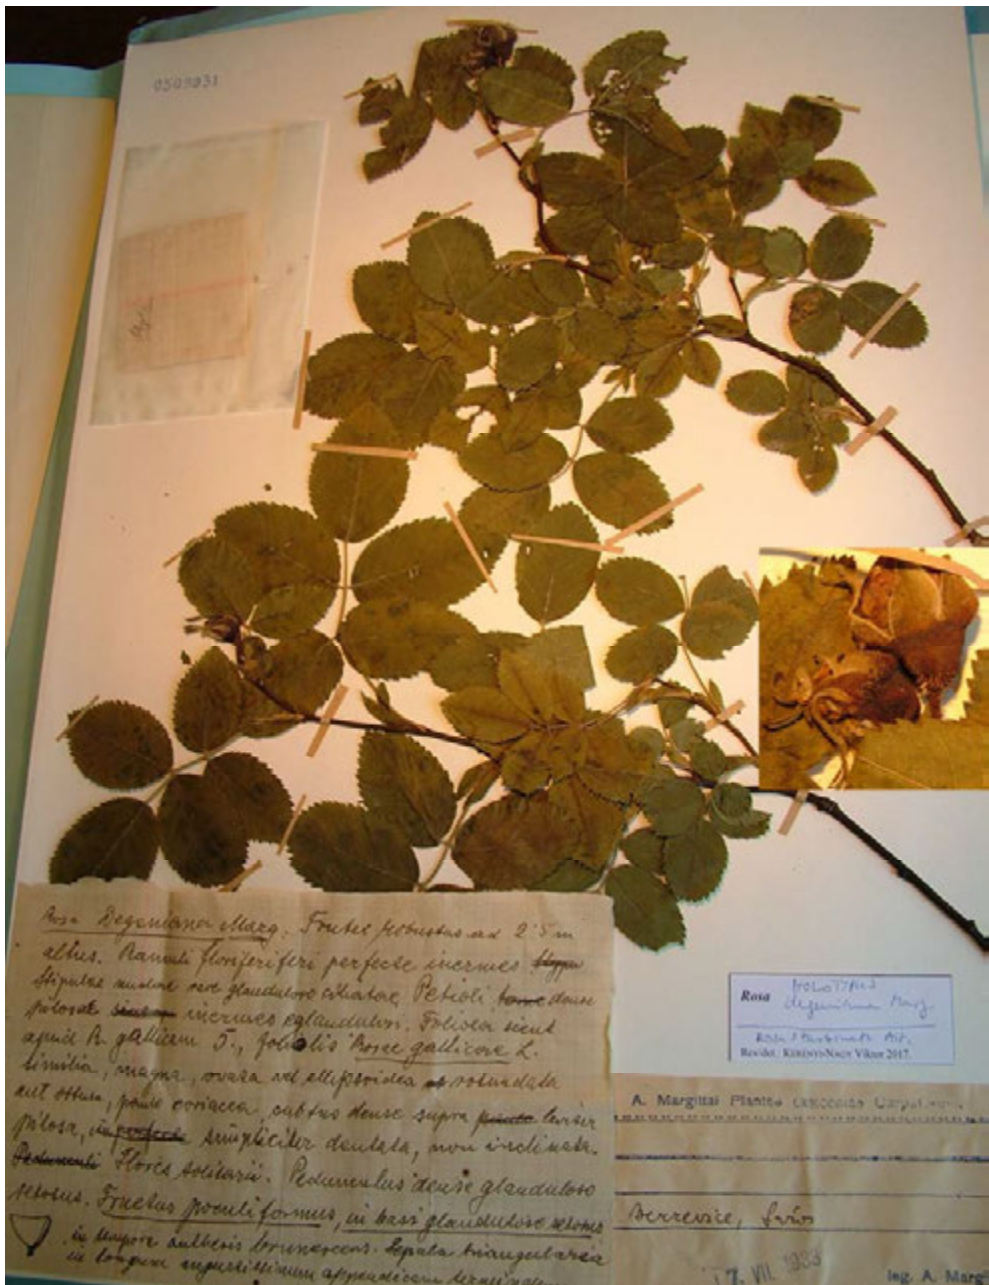 0509031
Rosa Degeniana Marg. Frutex robustus ad 2·5 m
altus. Ramuli floriferiferi perfecte inermes
Stipulae nudae rare glanduloso ciliatae Petioli dense
pilosae inermes eglandulosi. Foliola sicut
apud R. gallicam 5., foliolis Rosae gallicae L.
similia, magna, ovata vel ellipsoidea rotundata
aut obtusa, paulo coriacea, subtus dense supra leviter
pilosa, simpliciter dentata, non inclinata.
Pedunculi Flores solitarii. Pedunculus dense glanduloso
setosus. Fructus poculiformus, in basi glandulose setosus
in tempore brunnescens. Sepala triangularia
in longum angustissimum appendicem
HOLOTYPUS
Rosa degeniana Marg.
Rosa turbinata Ait.
Revidet: KERÉNYI-NAGY Viktor 2017.
A. Margittai Plantae
Berzevice,
17. VII. 1933
leg. A. Marg